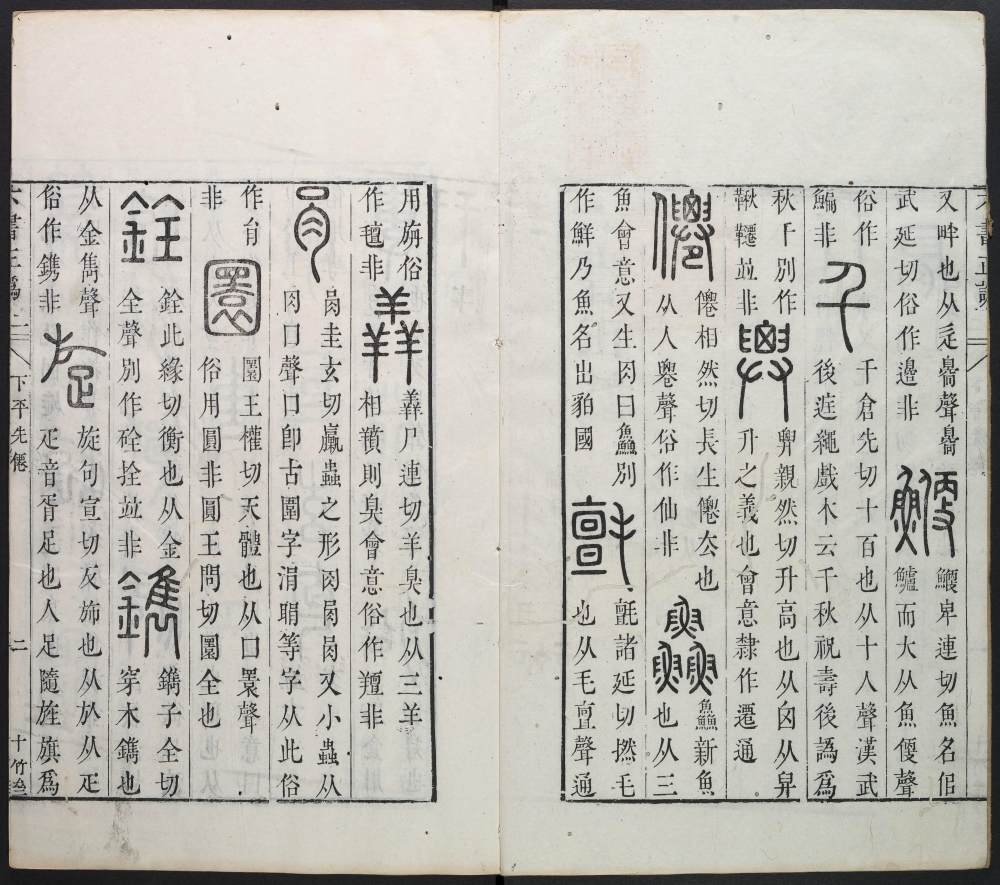 六書正譌
又畔也从辵臱聲臱
武延切俗作邊非
鯾
鯾卑連切魚名似
鱸而大从魚㛹聲
俗作
鯿非
千
千倉先切十百也从十人聲漢武
後庭繩戲木云千秋祝壽後譌為
秋千別作
鞦韆竝非
䙴
䙴親然切升高也从囟从舁
升之義也會意隸作遷通
僊
僊相然切長生僊去也
从人䙴聲俗作仙非
鱻
鱻新魚
也从三
魚會意又生肉曰鱻別
作鮮乃魚名出貉國
氈
氈諸延切撚毛
也从毛亶聲通
用旃俗
作氊非
羴
羴尸連切羊臭也从三羊
相羵則臭會意俗作羶非
肙
肙圭玄切蠃蟲之形肉肙肙又小蟲从
肉口聲口卽古圍字涓睊等字从此俗
作肓
非
圜
圜王權切天體也从囗睘聲
俗用圓非圓王問切圜全也
銓
銓此緣切衡也从金
全聲別作硂拴竝非
鐫
鐫子全切
穿木鐫也
从金雋聲
俗作鎸非
旋
旋句宣切反旆也从㫃从疋
疋音胥足也人足隨旌旗為
六書正譌
下平先僊
二
十竹齋